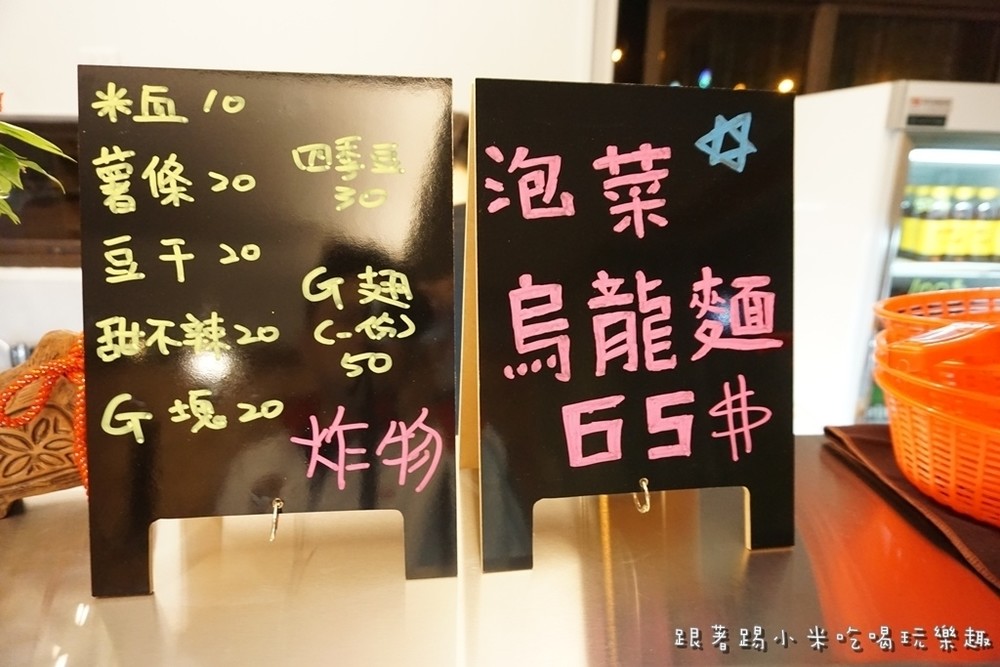 米血 10
薯條 20
豆干 20
甜不辣 20
G塊 20
四季豆
30
G翅
(一份)
50
炸物
泡菜
烏龍麵
65$
跟著踢小米吃喝玩樂趣